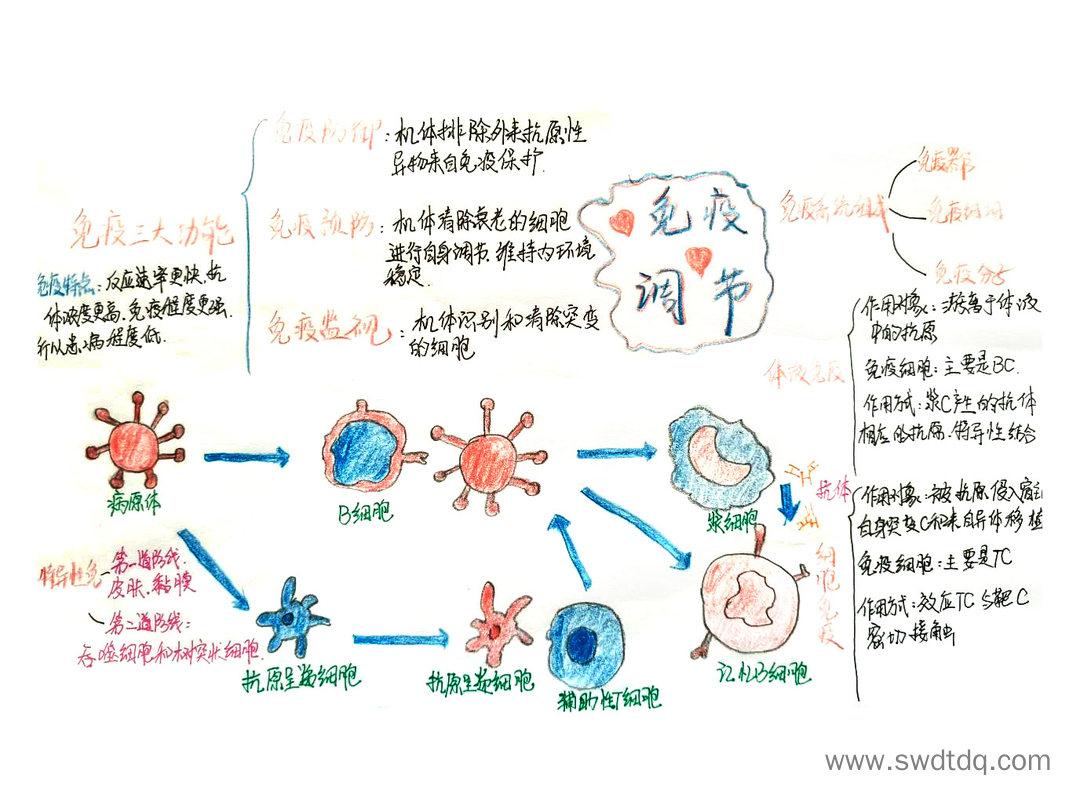 免疫调节
免疫三大功能
免疫防御：机体排除外来抗原性
异物来自免疫保护.
免疫预防：机体清除衰老的细胞
进行自身调节.维持内环境
稳定.
免疫监视：机体识别和清除突变
的细胞
免疫特点：反应速率更快.抗
体浓度更高.免疫程度更强.
所以患病程度低.
免疫系统组成
免疫器官
免疫细胞
免疫分子
体液免疫
作用对象：游离于体液
中的抗原
免疫细胞：主要是BC.
作用方式：浆C产生的抗体
相应的抗原.特异性结合
细胞免疫
作用对象：被抗原侵入宿主
自身突变C和来自异体移植
免疫细胞：主要是TC
作用方式：效应TC与靶C
密切接触
病原体
B细胞
浆细胞
抗体
特异性免
第一道防线.
皮肤、黏膜
第二道防线：
吞噬细胞和树突状细胞.
抗原呈递细胞
抗原呈递细胞
辅助性T细胞
记忆B细胞
www.swdtdq.com